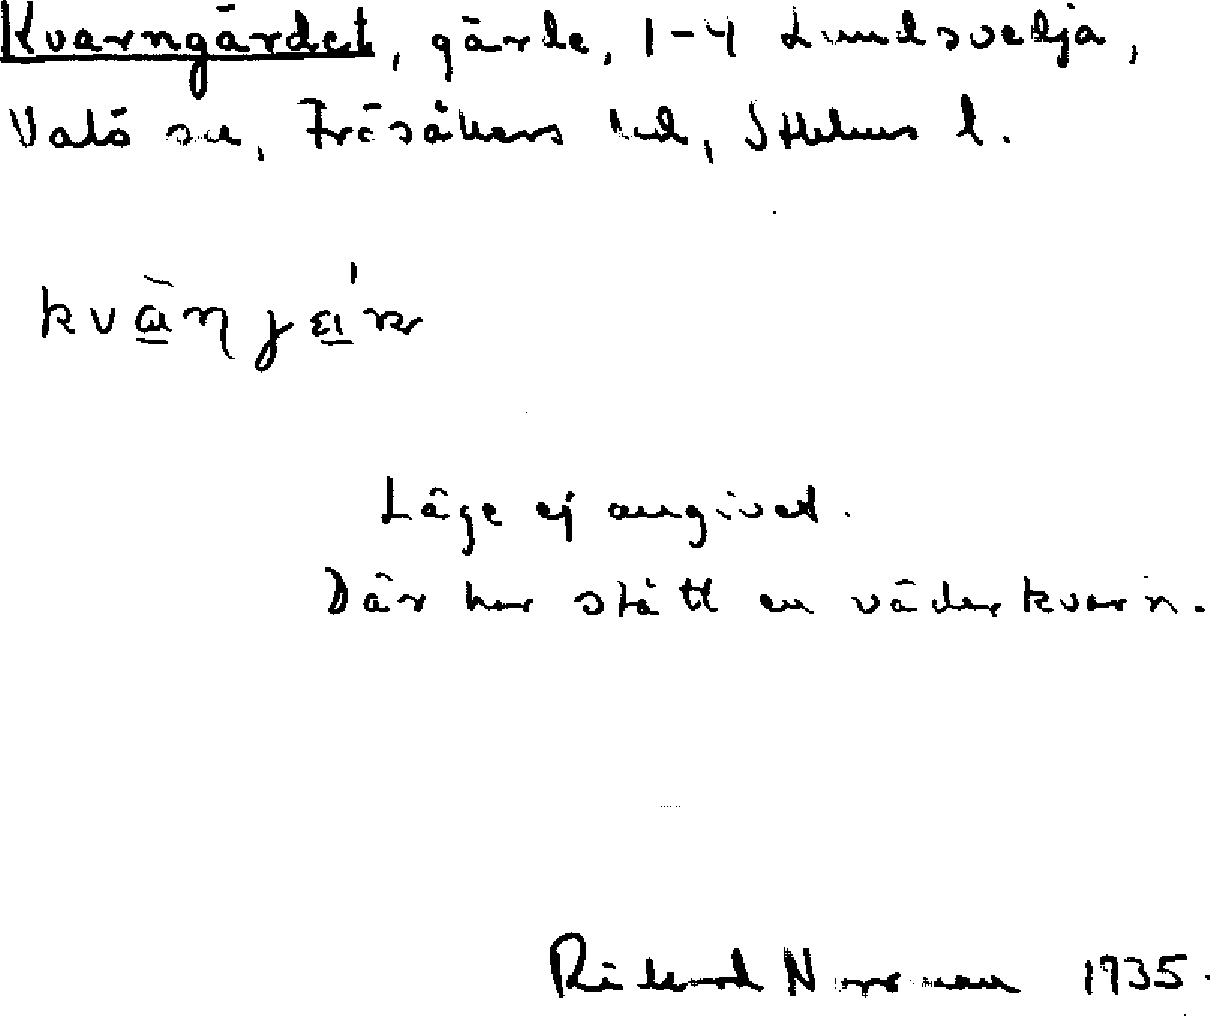 Kvarngärdet, gärde, 1-4 Lundsvedja,
Valö sn, Frösåkers hd, Sthlms l.
Läge ej angivet.
Där har stått en väderkvarn.
Rickard Norrman 1935.